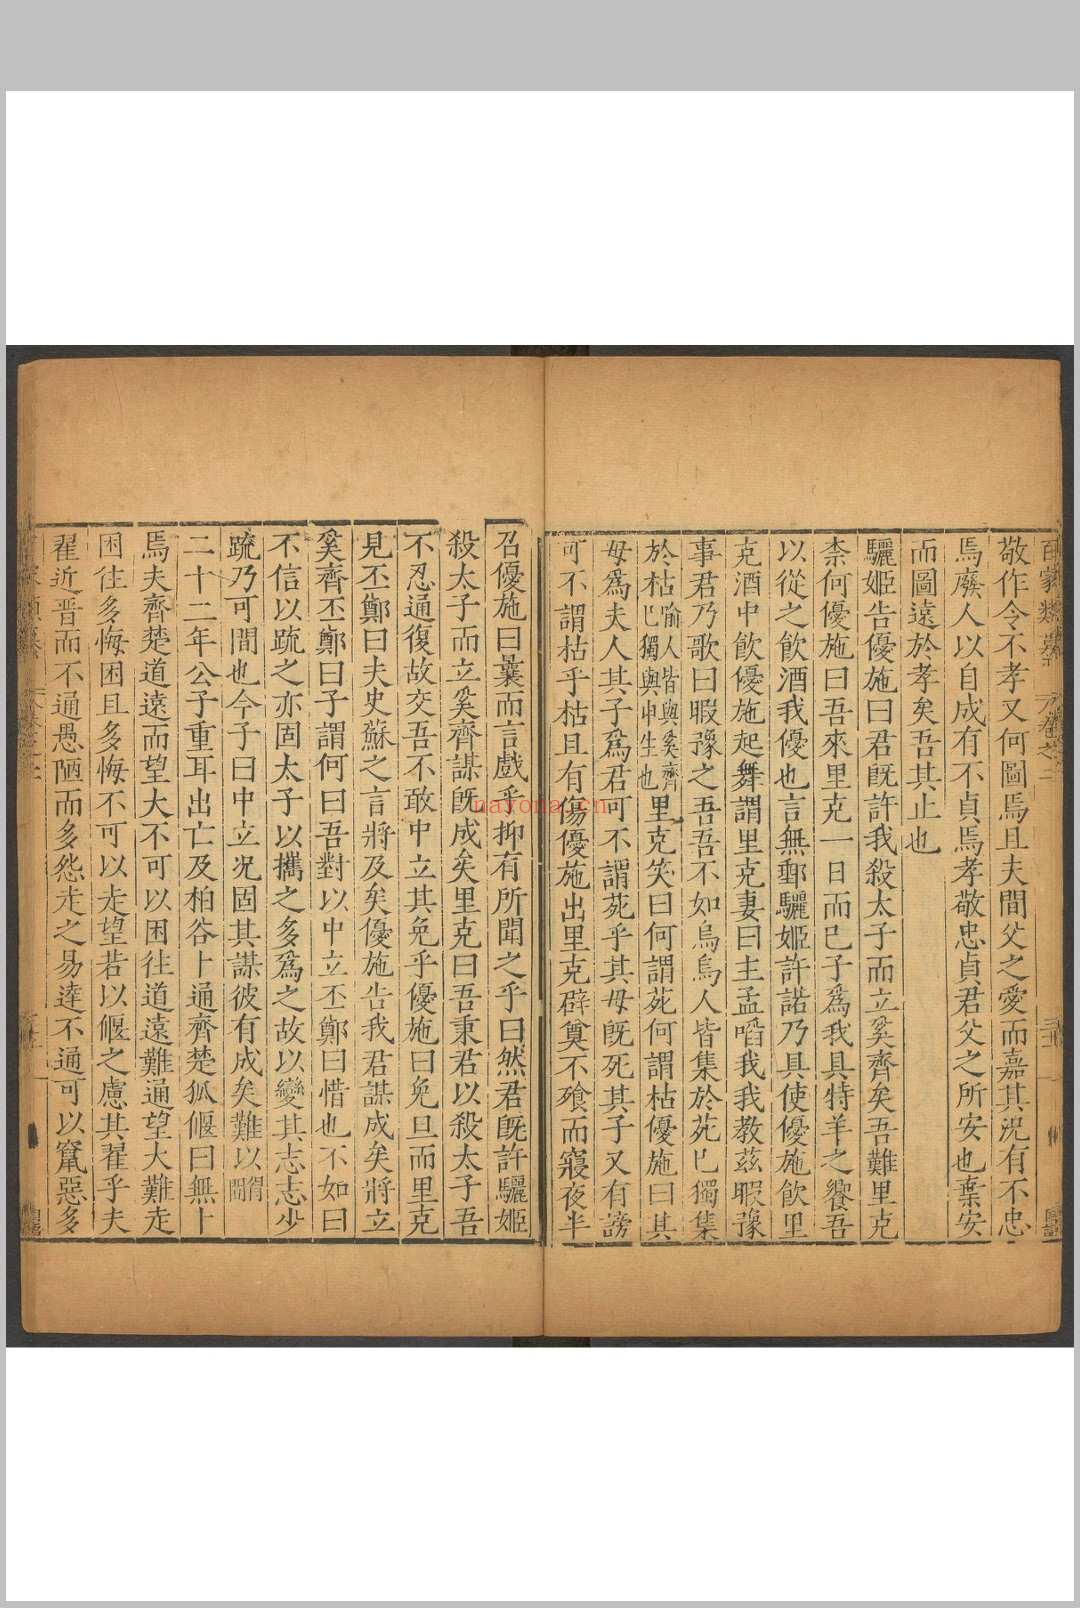 百家類纂 卷之二
敬作令不孝又何圖焉且夫間父之愛而嘉其況有不忠
焉廢人以自成有不貞焉孝敬忠貞君父之所安也棄安
而圖遠於孝矣吾其止也
驪姬告優施曰君既許我殺太子而立奚齊矣吾難里克
柰何優施曰吾來里克一日而已子爲我具特羊之饗吾
以從之飲酒我優也言無郵驪姬許諾乃具使優施飲里
克酒中飲優施起舞謂里克妻曰主孟啗我我教茲暇豫
事君乃歌曰暇豫之吾吾不如烏烏人皆集於苑巳獨集
於枯喻人皆與奚齊巳獨與申生也里克笑曰何謂苑何謂枯優施曰其
母爲夫人其子爲君可不謂苑乎其母既死其子又有謗
可不謂枯乎枯且有傷優施出里克辟奠不飧而寢夜半
召優施曰曩而言戲乎抑有所聞之乎曰然君既許驪姬
殺太子而立奚齊謀既成矣里克曰吾秉君以殺太子吾
不忍通復故交吾不敢中立其免乎優施曰免旦而里克
見丕鄭曰夫史蘇之言將及矣優施告我君謀成矣將立
奚齊丕鄭曰子謂何曰吾對以中立丕鄭曰惜也不如曰
不信以疏之亦固太子以攜之多爲之故以變其志志少
疏乃可間也今子曰中立况固其謀彼有成矣難以得間
二十二年公子重耳出亡及柏谷卜適齊楚狐偃曰無卜
焉夫齊楚道遠而望大不可以困往道遠難通望大難走
困往多悔困且多悔不可以走望若以偃之慮其翟乎夫
翟近晋而不通愚陋而多怨走之易逹不通可以竄惡多
nayona.cn